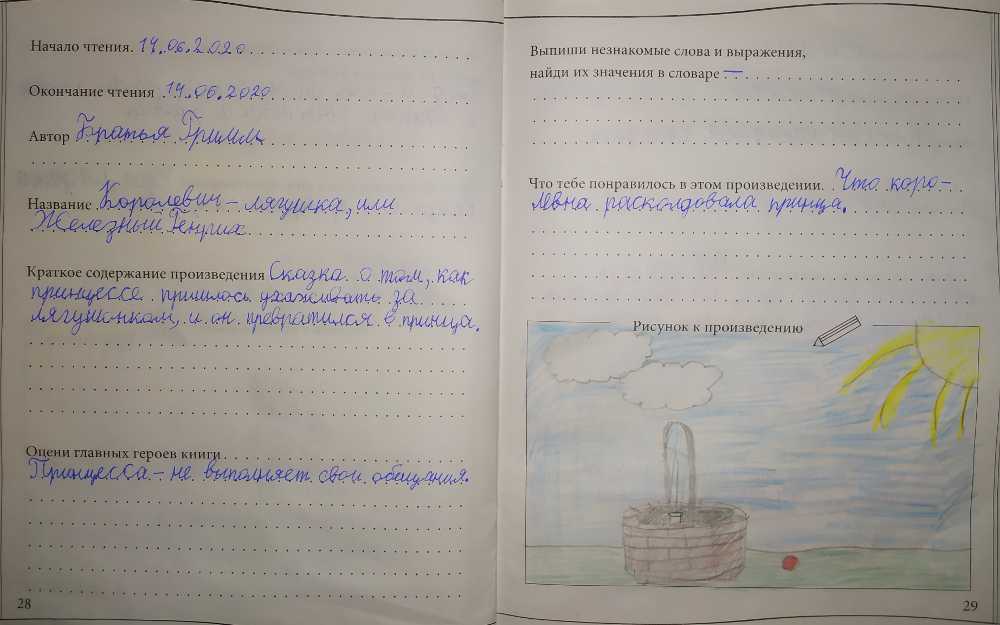 Начало чтения. 14.06.2020
Окончание чтения 14.06.2020
Автор Братья Гримм
Название Королевич - лягушка, или
Железный Генрих
Краткое содержание произведения Сказка о том, как
принцессе пришлось ухаживать за
лягушонком, и он превратился в принца.
Оцени главных героев книги
Принцесса - не выполняет свои обещания.
28
Выпиши незнакомые слова и выражения,
найди их значения в словаре —
Что тебе понравилось в этом произведении. Что коро-
левна расколдовала принца.
Рисунок к произведению
29